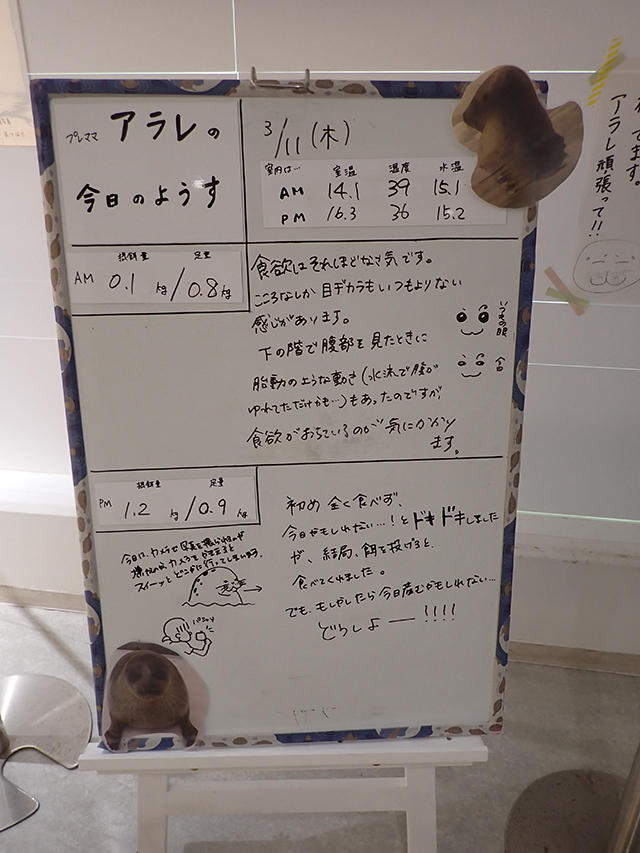 プレママ アラレの
今日のようす
3/11(木)
室内は… 室温 湿度 水温
AM 14.1 39 15.1
PM 16.3 36 15.2
AM 摂餌量 定量
0.1kg/0.8kg
食欲はそれほどなさ気です。
こころなしか目ヂカラもいつもよりない
感じがあります。
いつもの眼
今日
下の階で腹部を見たときに
胎動のような動き(水流で腹が
ゆれてただけかも…)もあったのですが、
食欲がおちているのが気にかかり
ます。
PM 摂餌量 定量
1.2kg/0.9kg
初め全く食べず、
今日かもしれない…!とドキドキしました
が、結局、餌を投げると、
食べてくれました。
でも、もしかしたら今日産むかもしれない…
どうしよー!!!!
今日は、カメラで写真を撮られるのが
カメラをかまえると
スイーッとどこかに行ってしまいます。
てます。
アラレ頑張って!!